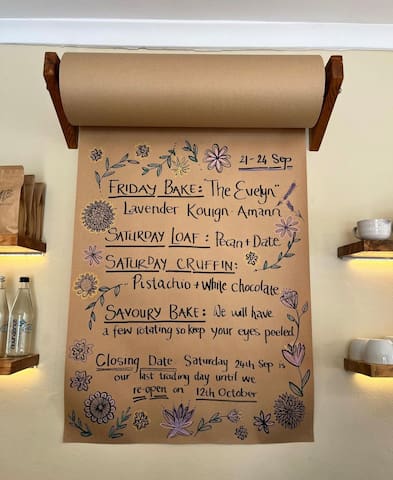 21-24 Sep
FRIDAY BAKE: "The Evelyn"
Lavender Kouign-Amann
SATURDAY LOAF: Pecan + Date
SATURDAY CRUFFIN:
Pistachio + White chocolate
SAVOURY BAKE: We will have
a few rotating so keep your eyes peeled
Closing Date: Saturday 24th Sep is
our last trading day until we
re-open on 12th October